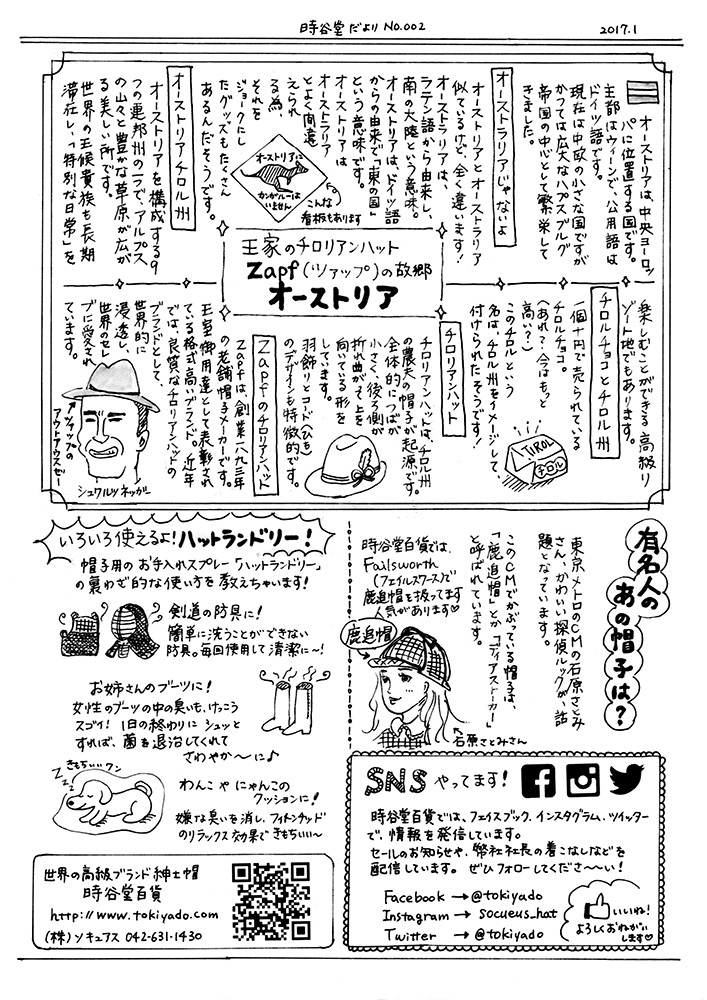 時谷堂だより NO.002
2017.1
オーストリアは、中央ヨーロッ
パに位置する国です。
主都はウィーンで、公用語は
ドイツ語です。
現在は中欧の小さな国ですが
かつては広大なハプスブルグ
帝国の中心として繁栄して
きました。
オーストラリアじゃないよ
オーストリアとオーストラリア
似ているけど、全く違います!
オーストラリアは、
ラテン語から由来し、
南の大陸という意味。
オーストリアは、ドイツ語
からの由来で「東の国」
という意味です。
オーストリアは
オーストラリア
とよく間違
えられ
る為、
それを
ジョークにし
たグッズもたくさん
あるんだそうです。
オーストリアに
カンガルーは
いません
こんな
看板もあります
オーストリアチロル州
オーストリアを構成する9
つの連邦州の一つで、アルプス
の山々と豊かな草原が広が
る美しい所です。
世界の王候貴族も長期
滞在し、「特別な日常」を
王家のチロリアンハット
Zapf(ツァップ)の故郷
オーストリア
楽しむことができる高級リ
ゾート地でもあります。
チロルチョコとチロル州
一個十円で売られている
チロルチョコ。
(あれ?今はもっと
高い?)
このチロルという
名は、チロル州をイメージして、
付けられたそうです!
TIROL
チロル
チロリアンハット
チロリアンハットは、チロル州
の農夫の帽子が起源です。
全体的につばが
小さく、後ろ側が
折れ曲がって上を
向いている形を
しています。
羽飾りとコード(ひも)
のデザインも特徴的です。
Zapfのチロリアンハット
Zapfは、創業一八九三年
の老舗帽子メーカーです。
王室御用達として表彰され
ている格式高いブランド。近年
では、良質なチロリアンハットの
ブランドとして、
世界的に
浸透し、
世界のセレ
ブに愛され
ています。
ツァップの
アウトアウスゼー
シュワルツネッガー
いろいろ使えるよ!ハットランドリー!
帽子用のお手入れスプレー「ハットランドリー」
の裏わざ的な使い方を教えちゃいます!
剣道の防具に!
簡単に洗うことができない
防具。毎回使用して清潔に〜!
お姉さんのブーツに!
女性のブーツの中の臭いも、けっこう
スゴイ! 1日の終わりにシュッと
すれば、菌を退治してくれて
さわやか〜に♪
きもちいいワン
ZZZ
わんこやにゃんこの
クッションに!
嫌な臭いを消し、フィトンチッド
のリラックス効果できもちいい〜
世界の高級ブランド紳士帽
時谷堂百貨
http://www.tokiyado.com
(株)ソキュアス 042-631-1430
有名人の
あの帽子は?
東京メトロのCMの石原さとみ
さん、かわいい探偵ルックが、話
題となっています。
このCMでかぶっている帽子は、
「鹿追帽」とか「ディアストーカー」
と呼ばれています。
時谷堂百貨では、
Failsworth
(フェイルスワース)で
鹿追帽を扱ってます
人気があります♡
鹿追帽
石原さとみさん
SNS やってます!
時谷堂百貨では、フェイスブック、インスタグラム、ツイッター
で、情報を発信しています。
セールのお知らせや、弊社社長の着こなしなどを
配信しています。ぜひフォローしてくださ〜〜い!
Facebook → @tokiyado
Instagram → socueus_hat
Twitter → @tokiyado
いいね!
よろしくおねがい
します♡